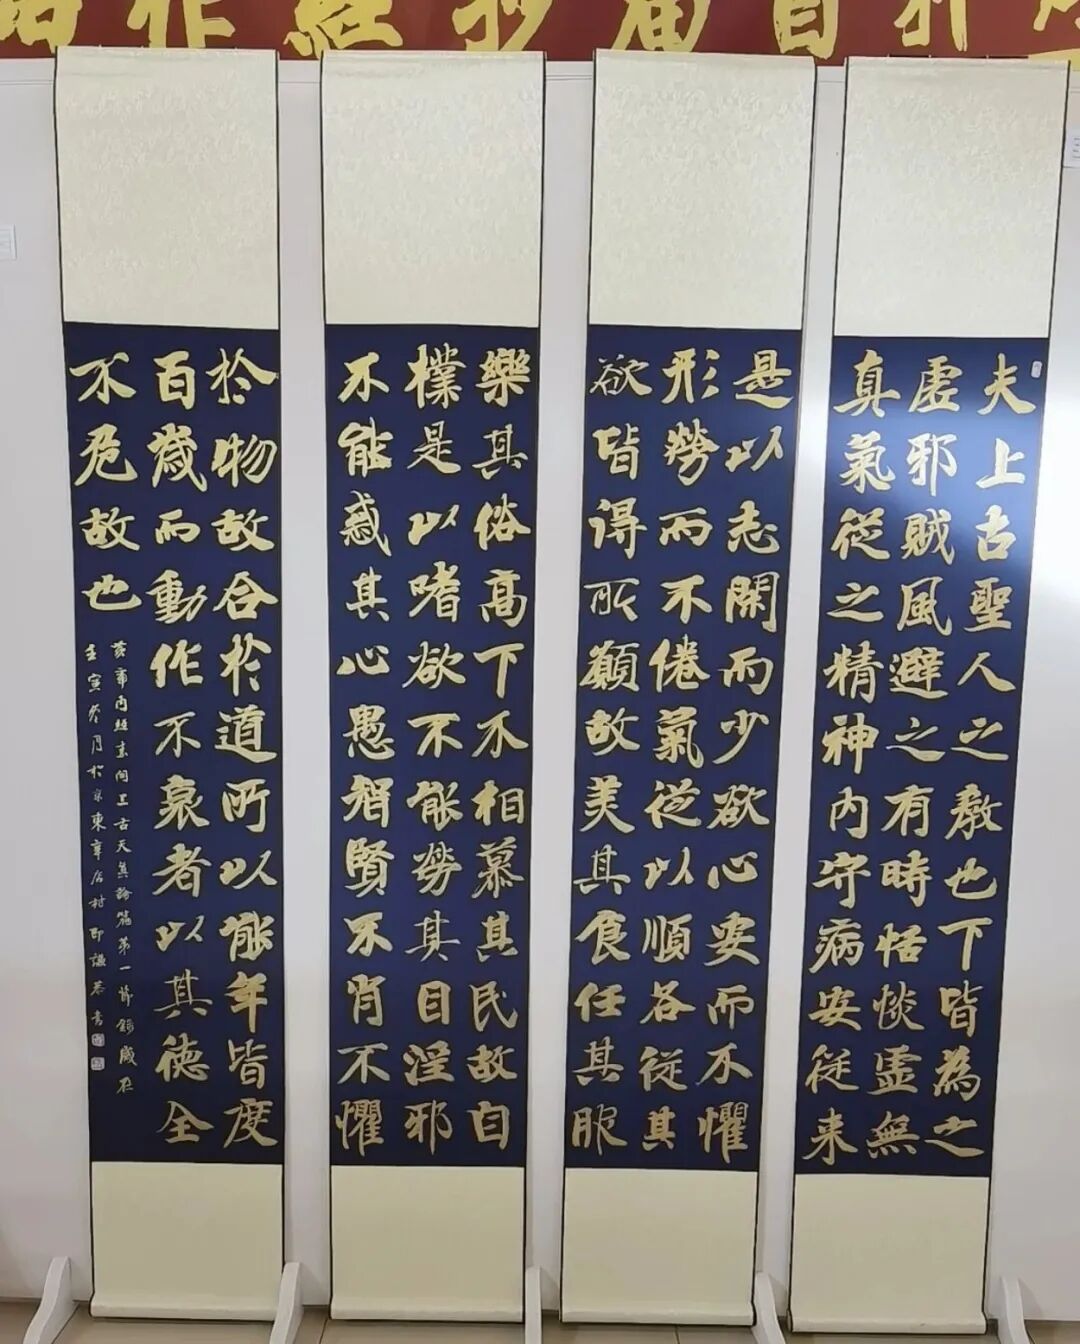 夫上古聖人之教也下皆為之
虛邪賊風避之有時恬惔虛無
真氣從之精神内守病安從来
是以志閑而少欲心安而不懼
形勞而不倦氣從以順各從其
欲皆得所願故美其食任其服
樂其俗高下不相慕其民故自
樸是以嗜欲不能勞其目淫邪
不能惑其心愚智賢不肖不懼
於物故合於道所以能年皆度
百歲而動作不衰者以其德全
不危故也
黃帝内經素問上古天真論篇第一節錄歲在
壬寅冬月於京東辛店村郎謙恭書